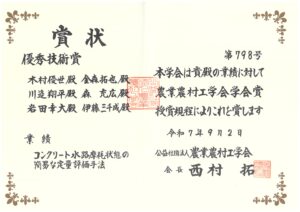 賞状
優秀技術賞
木村優世殿 金森拓也殿
川邉翔平殿 森 充広殿
岩田幸大殿 伊藤三千成殿
業績
コンクリート水路摩耗状態の
簡易な定量評価手法
第798号
本学会は貴殿の業績に対して
農業農村工学会学会賞
授賞規程によりこれを賞します
令和7年9月2日
公益社団法人 農業農村工学会
会長 西村 拓